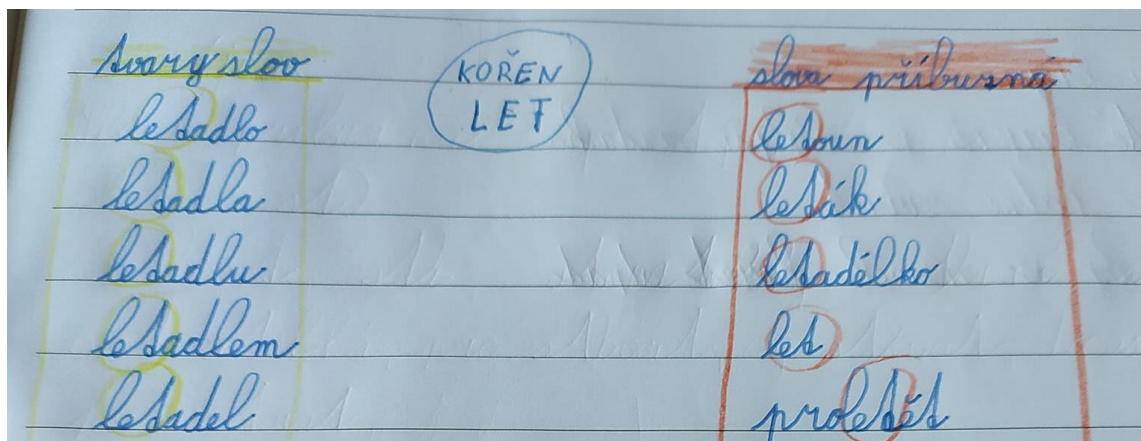 tvary slov
letadlo
letadla
letadlu
letadlem
letadel
KOŘEN
LET
slova příbuzná
letoun
leták
letadélko
let
proletět